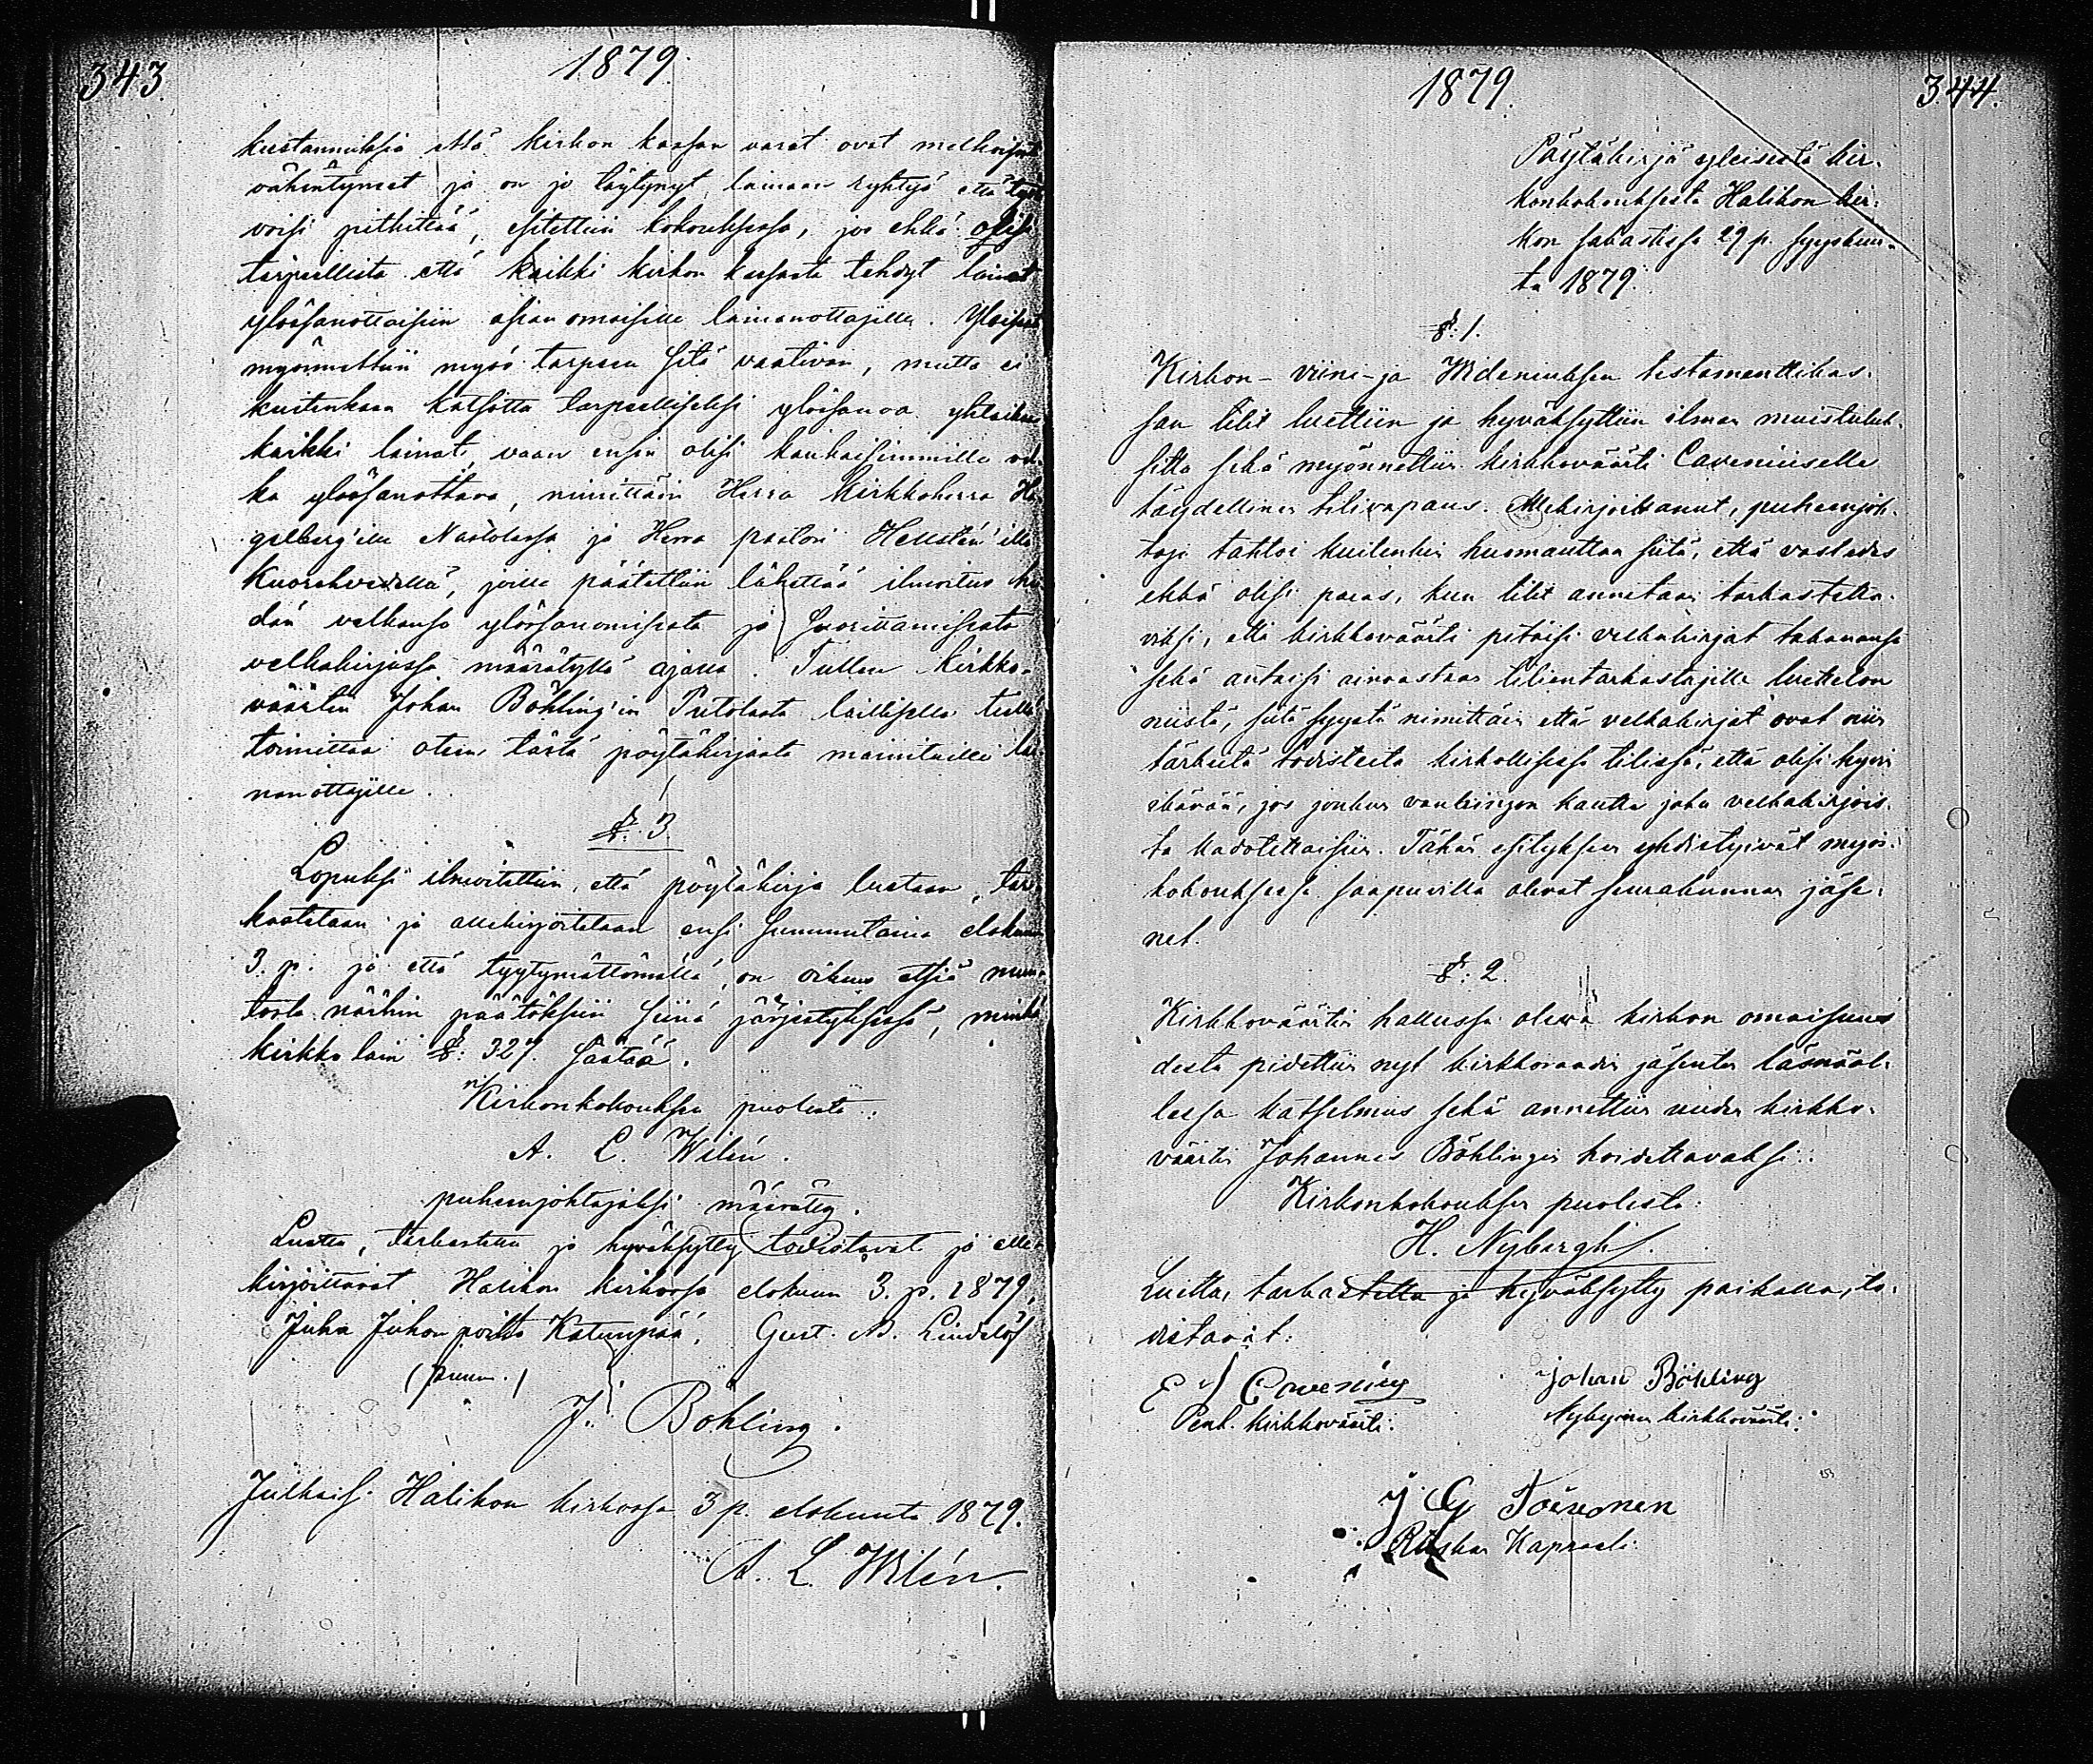 343.
1879.
kustannuksia että kirkon kassan varat ovat melkoisesti
vähentyneet ja on jo täytynyt lainaan ryhtyä että työtä
voisi pitkittää, esitettiin kokouksessa, jos ehkä olisi
tarpeellista että kaikki kirkon kassasta tehdyt lainat
ylösanottaisiin asianomaisille lainanottajille. Yleisesti
myönnettiin myös tarpeen sitä vaativan, mutta ei
kuitenkaan katsottu tarpeelliseksi ylösanoa yhtaikaa
kaikki lainat, vaan ensin olisi kaukaisimmille vel-
ka ylösanottava, nimittäin Herra Kirkkoherra
gelberg'ille Nastolassa ja Herra pastori Hellstén'ille
Kuorehvedellä, joille päätettiin lähettää ilmoitus hei-
dän velkansa ylösanomisesta ja suorittamisesta
velkakirjassa määrätyllä ajalla. Tullen kirkko-
väärtin Johan Böhling'in Pietolasta laillisella tiellä
toimittaa otteen tästä pöytäkirjasta mainituille lai-
nanottajille.
§. 3.
Lopuksi ilmoitettiin, että pöytäkirja luetaan, tar-
kastetaan ja allekirjoitetaan ensi sunnuntaina elokuun
3. p. ja että tyytymättömällä, on oikeus etsiä muu-
tosta näihin päätöksiin siinä järjestyksessä, minkä
kirkko lain §: 327. säätää.
Kirkonkokouksen puolesta:
A. L. Wilén.
puheenjohtajaksi määrätty.
Luettu, tarkastettu ja hyväksytty, todistavat ja alle-
kirjoittavat Halikon kirkossa elokuun 3. p. 1879,
Juha Juhon poika Katunpää. Gust. Ad. Lindelöf
J. Böhling.
Julkaisi Halikon kirkossa 3 p. elokuuta 1879.
A. L. Wilén.
1879.
344.
Pöytäkirja yleisestä kir-
konkokouksesta Halikon kir-
kon sakastissa 29 p. syyskuu-
ta 1879.
§. 1.
Kirkon- viini- ja Wideniuksen testamenttikas-
san tilit luettiin ja hyväksyttiin ilman muistutuk-
sitta sekä myönnettiin kirkkoväärti Caveniukselle
täydellinen tilivapaus. Allekirjoittanut, puheenjoh-
taja tahtoi kuitenkin huomauttaa siitä, että vastedes
ehkä olisi paras, kun tilit annetaan tarkastetta-
viksi, että kirkkoväärti pitäisi velkakirjat takanansa
sekä antaisi ainoastaan tilientarkastajille luettelon
niistä, siitä syystä nimittäin että velkakirjat ovat niin
tärkeitä todisteita kirkollisessa tilissä, että olisi hyvin
ikävää, jos jonkun vahingon kautta joku velkakirjois-
ta kadotettaisiin. Tähän esitykseen yhdistyivät myös
kokouksessa saapuvilla olevat seurakunnan jäse-
net.
§. 2.
Kirkkoväärtin hallussa olevan kirkon omaisuu-
desta pidettiin nyt kirkkoraadin jäsenten läsnäol-
lessa katselmus sekä annettiin uuden kirkko-
väärtin Johannes Böhlingin hoidettavaksi.
Kirkonkokouksen puolesta:
H. Nybergh.
Luettu, tarkastettu ja hyväksytty paikalla, to-
distavat:
E J Cavenius
Johan Böhling
Ent. kirkkoväärti.
Nykyinen kirkkoväärti.
J. G Toivonen
Ruskan Kapraali.